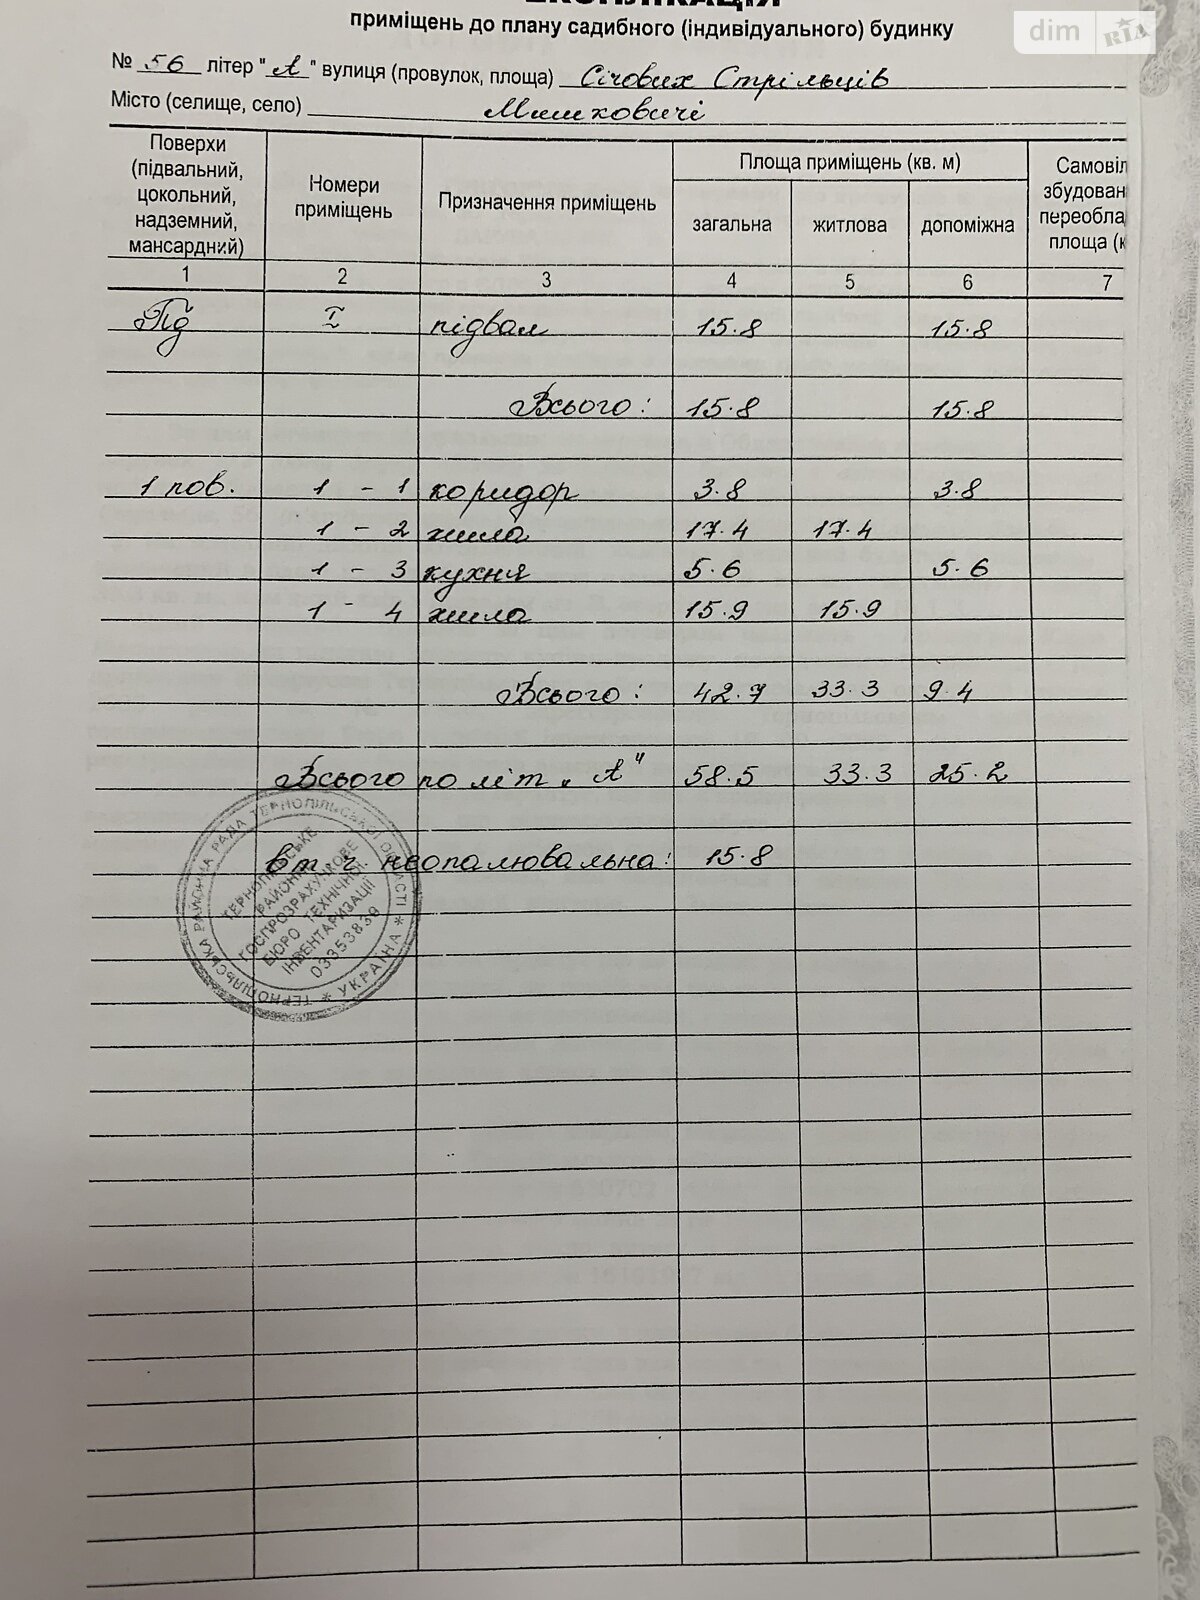 ЕКСПЛІКАЦІЯ
приміщень до плану садибного (індивідуального) будинку
№ 56 літер "А" вулиця (провулок, площа) Січових Стрільців
Місто (селище, село) Мишковичі
Поверхи (підвальний, цокольний, надземний, мансардний) Номери приміщень Призначення приміщень Площа приміщень (кв. м) загальна житлова допоміжна
1 2 3 4 5 6 7
Пд I підвал 15.8 15.8
Всього: 15.8 15.8
1 пов. 1 - 1 коридор 3.8 3.8
1 - 2 жила 17.4 17.4
1 - 3 кухня 5.6 5.6
1 - 4 жила 15.9 15.9
Всього: 42.7 33.3 9.4
Всього по літ. „А" 58.5 33.3 25.2
в т.ч неопалювальна: 15.8
ТЕРНОПІЛЬСЬКА РАЙОННА РАДА ТЕРНОПІЛЬСЬКОЇ ОБЛАСТІ * УКРАЇНА *
ТЕРНОПІЛЬСЬКЕ
РАЙОННЕ
ГОСПРОЗРАХУНКОВЕ
БЮРО ТЕХНІЧНОЇ
ІНВЕНТАРИЗАЦІЇ
03353839
dim RIA